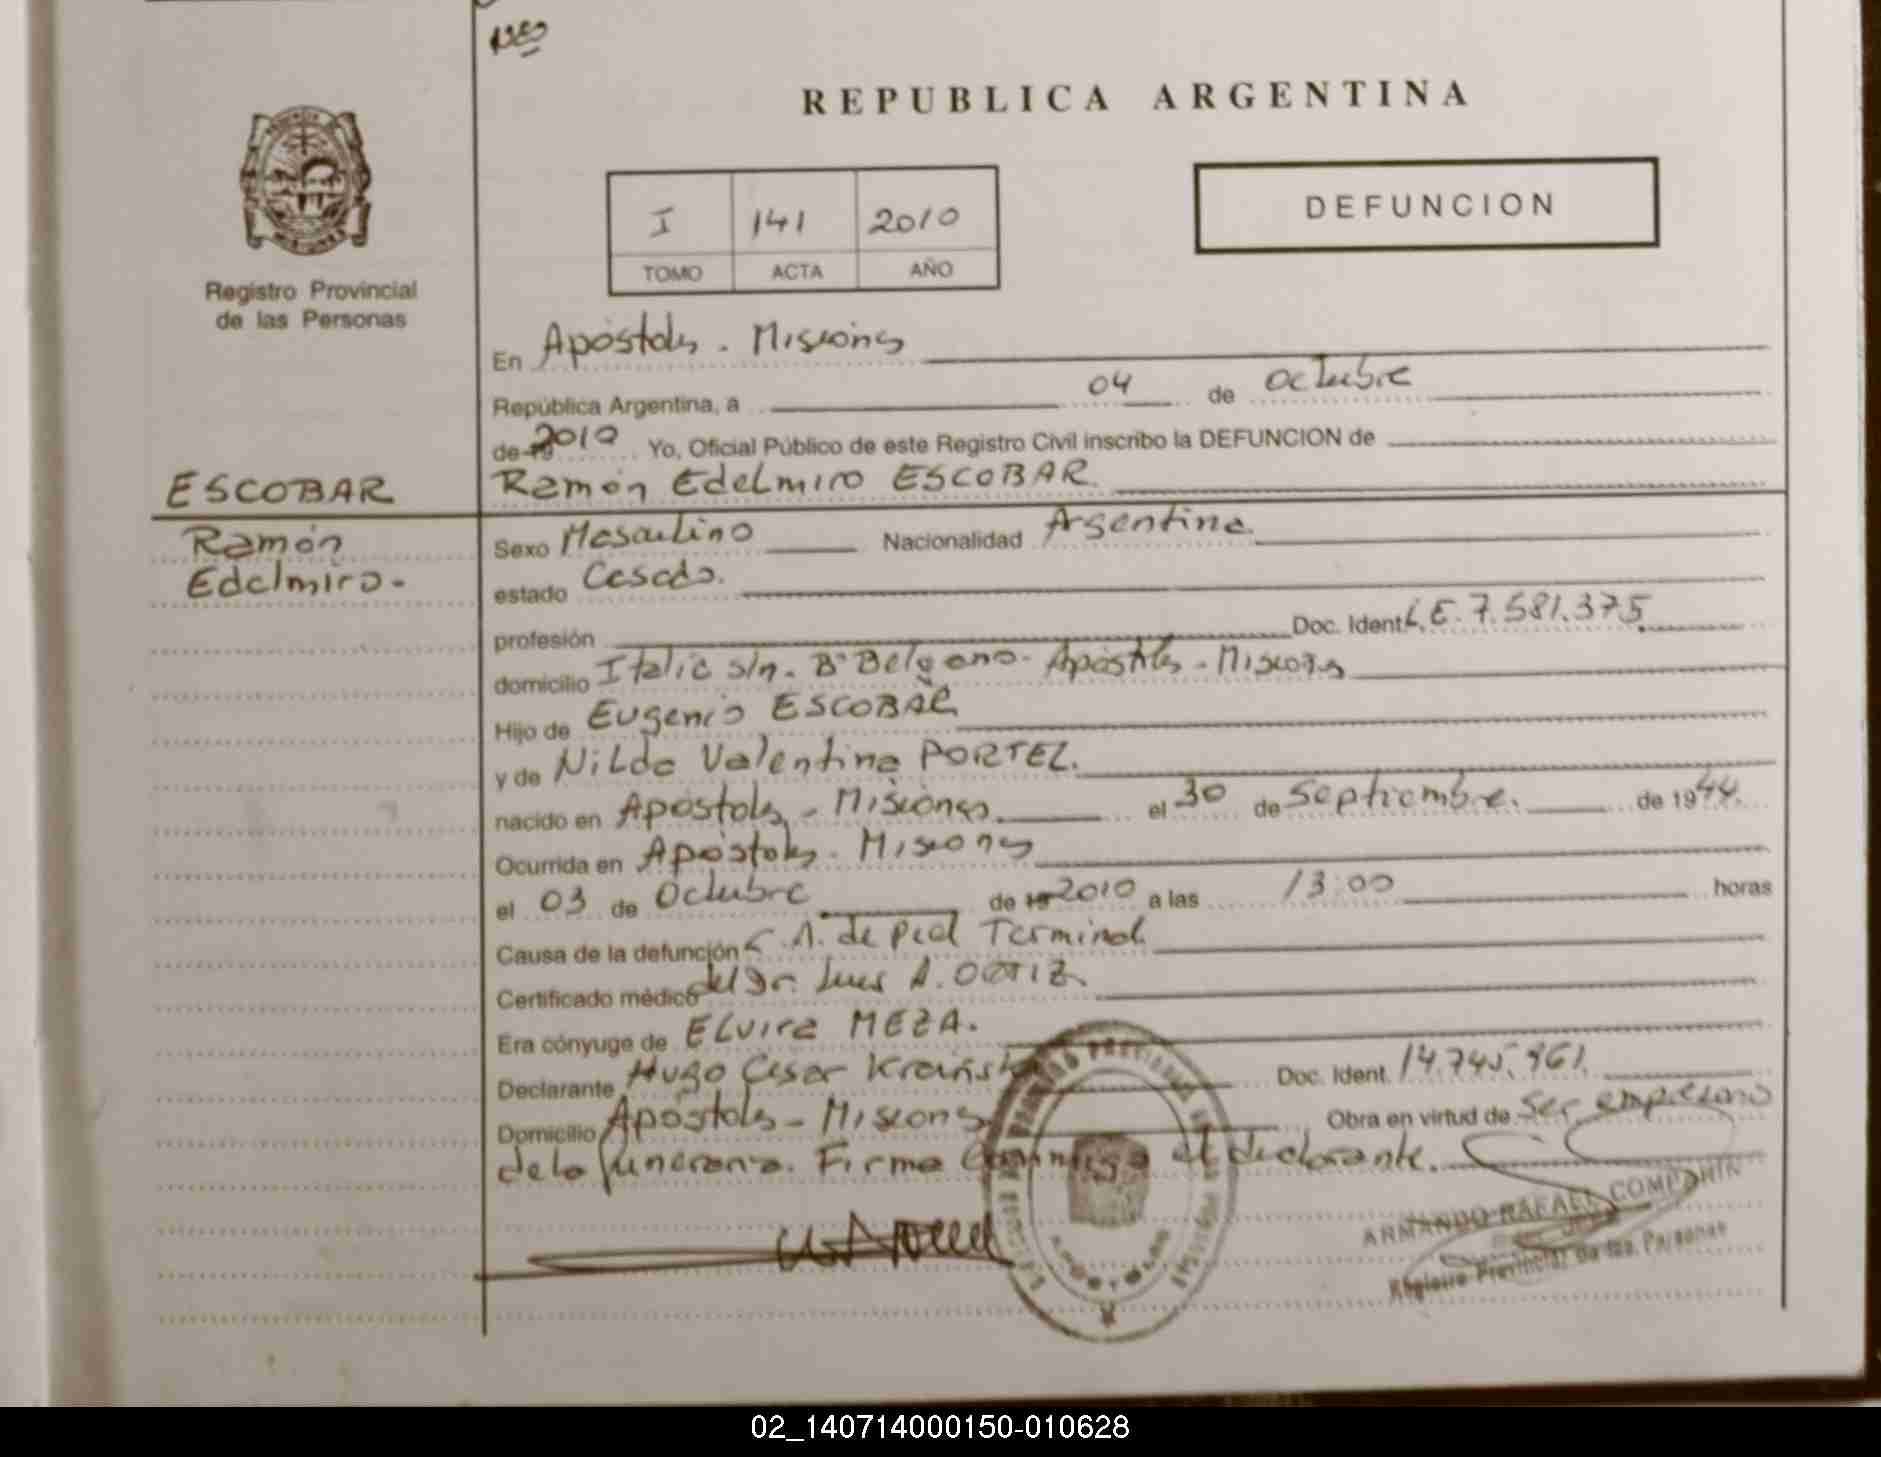 REPUBLICA ARGENTINA
Registro Provincial
de las Personas
I 141 2010
TOMO ACTA AÑO
DEFUNCION
En Apóstoles - Misiones
República Argentina, a 04 de Octubre
de 19 2010 Yo, Oficial Público de este Registro Civil inscribo la DEFUNCION de
ESCOBAR
Ramón Edelmiro ESCOBAR
Ramón
Edelmiro.-
Sexo Masculino Nacionalidad Argentina
estado Casado.
profesión Doc. Ident. L.E. 7.581.375
domicilio Italia s/n. Bº Belgrano - Apóstoles - Misiones
Hijo de Eugenio ESCOBAR
y de Nilda Valentina PORTEL.
nacido en Apóstoles - Misiones. el 30 de Septiembre. de 1944.
Ocurrida en Apóstoles - Misiones
el 03 de Octubre de 19 2010 a las 13:00 horas
Causa de la defunción C.A. de Piel Terminal
Certificado médico del Dr. Luis A. ORTIZ
Era cónyuge de ELvira MEZA.
Declarante Hugo Cesar Doc. Ident. 14.745.961.
Domicilio Apóstoles - Misiones Obra en virtud de Ser empresario
de la funeraria. Firma Conmigo el declarante.
ARMANDO RAFAEL
Registro Provincial de las Personas
02_140714000150-010628